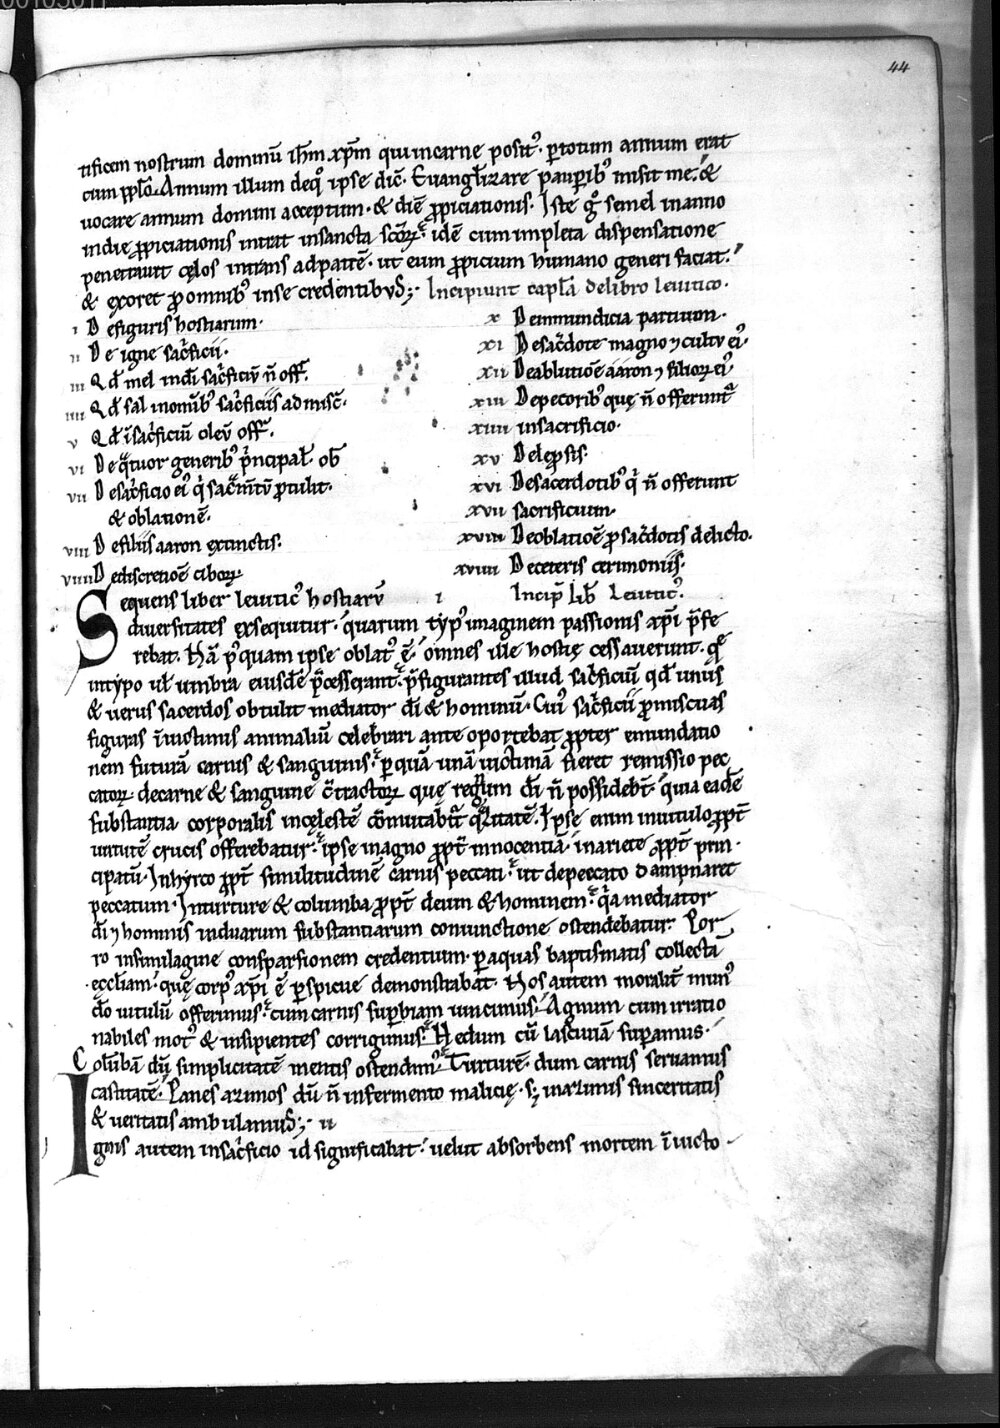 44
tificem nostrum dominū ihm̄ xp̄m qui incarne posit᾽. ꝑtotum annum erat
cum pplō. Annum illum deq᾽ ipse dic̄. Euangl̄izare pauꝑib᾽ misit me. &
uocare annum domini acceptum. & diē ꝓpiciationis. Iste g° semel inanno
indie ꝓpiciationis intrat insancta sc̄oꝝ. idē cum impleta dispensatione
penetrauit cęlos intrans adpatrē. ut eum ꝓpicium humano generi faciat.
& exoret ꝓomnib᾽ inse credentibuS; Incipiunt capl̄a delibro leuitico.
i De figuris hostiarum.
ii De igne sac̄ficii.
iii Qd̄ mel indī sac̄ficiū n̄ off̄.
iiii Qd̄ sal inomīb᾽ sac̄ficiis admisc̄.
v Qd̄ ī sac̄ficiū oleū off̄.
vi De qͣtuor generib᾽ p̄ncipal̄. ob̄
vii De sac̄ficio ei᾽ q̄ sac̄mtū ꝓtulit.
& oblationē.
viii De filiis aaron extinctis.
viiii De discretioē ciboꝝ
x De inmundicia partuum.
xi De sac̄dote magno ⁊ cultu ei᾽.
xii De ablutiōē aaron ⁊ filioꝝ ei᾽
xiii De pecorib᾽ quę n̄ offeruntᷣ
xiiii insacrificio.
xv De leprosis.
xvi De sacerdotib᾽ q̄ n̄ offerunt
xvii sacrificium.
xviii De oblatioē ꝓ sac̄dotis delicto.
xviiii De ceteris cerimoniis.
Incip̄ Lib̄ Leuitic᾽.
Sequens liber leuitic᾽ hostiarū i
diuersitates exsequitur. quarum typ᾽ imaginem passionis xp̄i p̄fe
rebat. Nā p᾽quam ipse oblat᾽ ē. omnes ille hostię cessauerunt. quę
intypo ul̄ umbra eiusdē p̄cesserant. p̄figurantes illud sac̄ficiū qd̄ unus
& uerus sacerdos obtulit mediator dī & hominū. Cui᾽ sac̄ficii ꝓmiscuas
figuras ī uictimis animaliū celebrari ante oportebat ꝓpter emundatio
nem futurā carnis & sanguinis. ꝑ quā unā uictimā fieret remissio pec
catoꝝ. decarne & sanguine c̄tractoꝝ quę regnum dī n̄ possidebt̄. quia eadē
substantia corporalis incęlestē cōmutabit̄ qͣlitatē. Ipse enim inuitulo ꝓpt̄
uirtutē crucis offerebatur. ipse inagno ꝓpt̄ innocentiā. inariete ꝓpt̄ prin
cipatū. Inhyrco ꝓpt̄ similitudinē carnis peccati. ut depeccato dampnaret
peccatum. Inturture & columba ꝓpt̄ deum & hominem. qͣa mediator
dī ⁊ hominis induarum substantiarum coniunctione ostendebatur. Por
ro insimilagine consparsionem credentium. ꝑaquas baptismatis collectā
ęccl̄iam. quę corp᾽ xp̄i ē ꝑspicue demonstrabat. Hos autem moralit̄ mun᾽
dō uitulū offerimus. cum carnis suꝑbiam uincimus. Agnum cum irratio
nabiles mot᾽ & insipientes corrigimus. Hedum cū lasciuiā suꝑamus.
Colūbā dū simplicitatē mentis ostendim᾽. Turturē. dum carnis seruamus
castitatē. Panes azimos dū n̄ infermento malicię. sꝫ inazimis sinceritatis
& ueritatis ambulamuS; ii
Ignis autem insac̄ficio id significabat. uelut absorbens mortem ī uicto